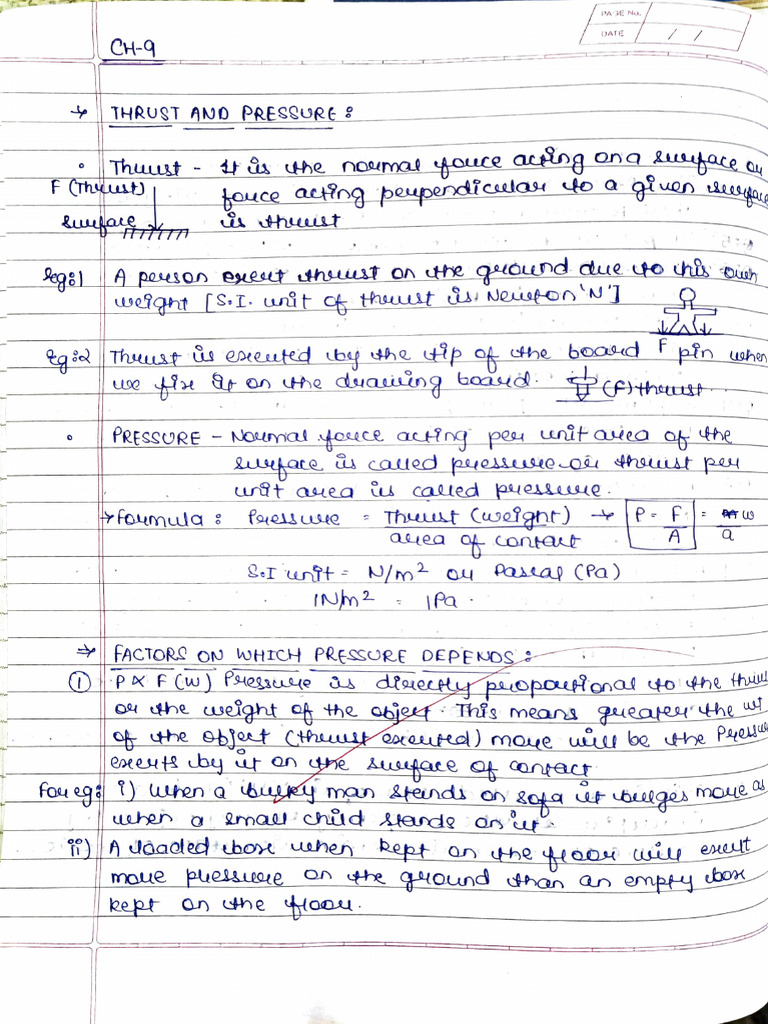 PAGE No.
DATE / /
CH-9
→ THRUST AND PRESSURE:
• Thrust - It is the normal force acting on a surface or
F (Thrust) force acting perpendicular to a given surface
surface is thrust
eg:1 A person exert thrust on the ground due to his own
weight [S.I. unit of thrust is Newton 'N']
Eg:2 Thrust is exerted by the tip of the board F pin when
we fix it on the drawing board. (F) thrust
• PRESSURE - Normal force acting per unit area of the
surface is called pressure or thrust per
unit area is called pressure.
→ formula: Pressure = Thrust (weight) → P = F = w
area of contact A a
S.I unit = N/m² or Pascal (Pa)
1N/m² = 1Pa.
→ FACTORS ON WHICH PRESSURE DEPENDS:
① P ∝ F (W) Pressure is directly proportional to the thrus
or the weight of the object. This means greater the wt
of the object (thrust exerted) more will be the Pressure
exerts by it on the surface of contact
For eg: i) When a bulky man stands on sofa it bulges more as
when a small child stands on it.
ii) A loaded box when kept on the floor will exert
more pressure on the ground than an empty box
kept on the floor.